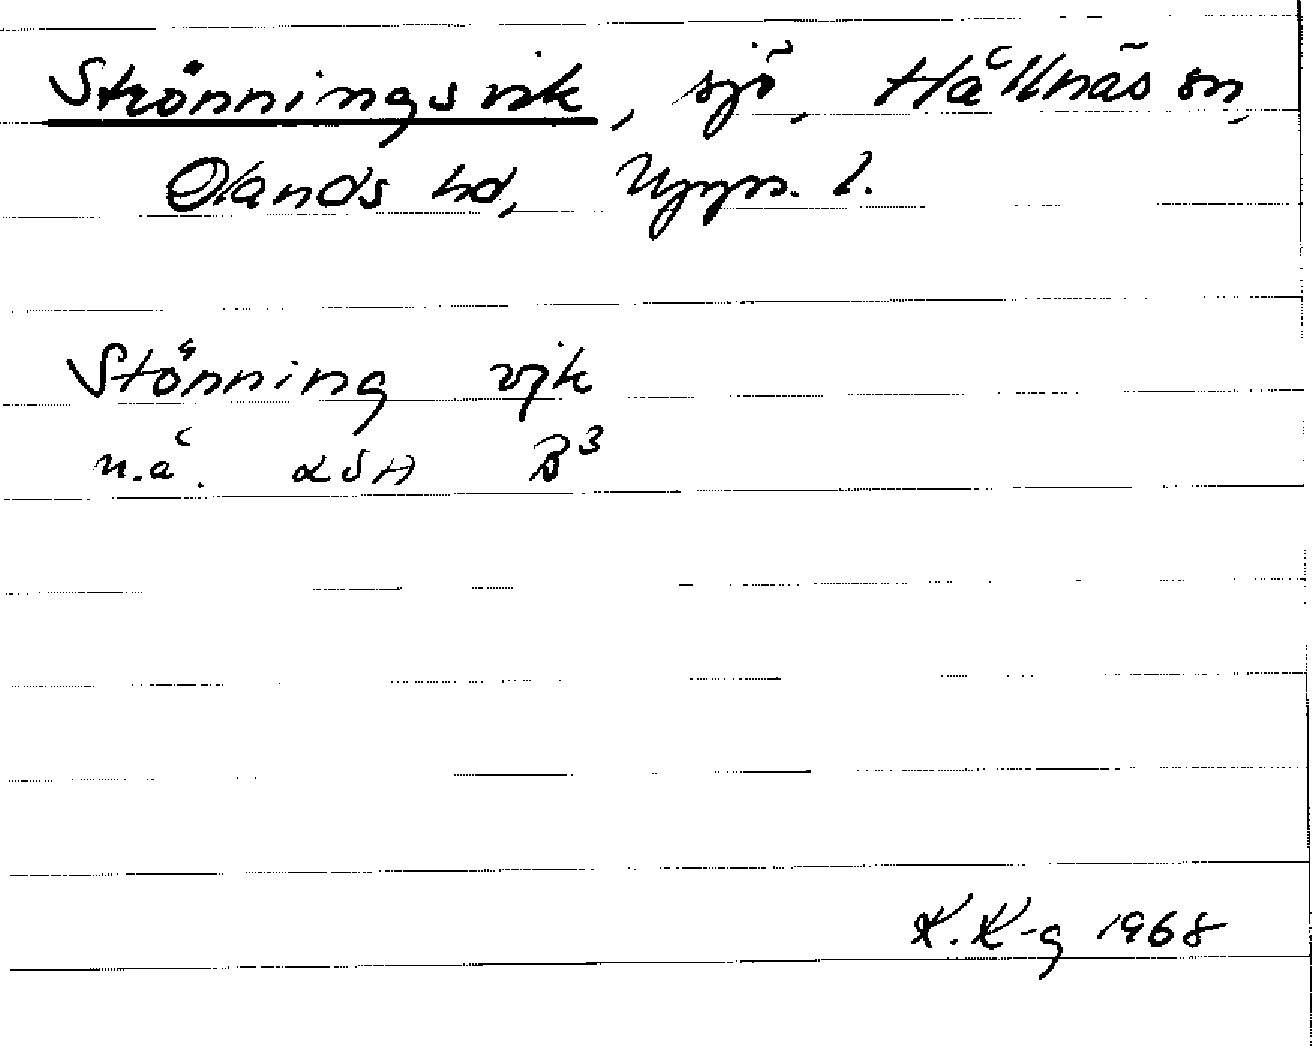 Strönningsvik, sjö, Hållnäs sn,
Olands hd, Upps. l.
Stönning vjk
n.å. LSA B³
K. K-g 1968